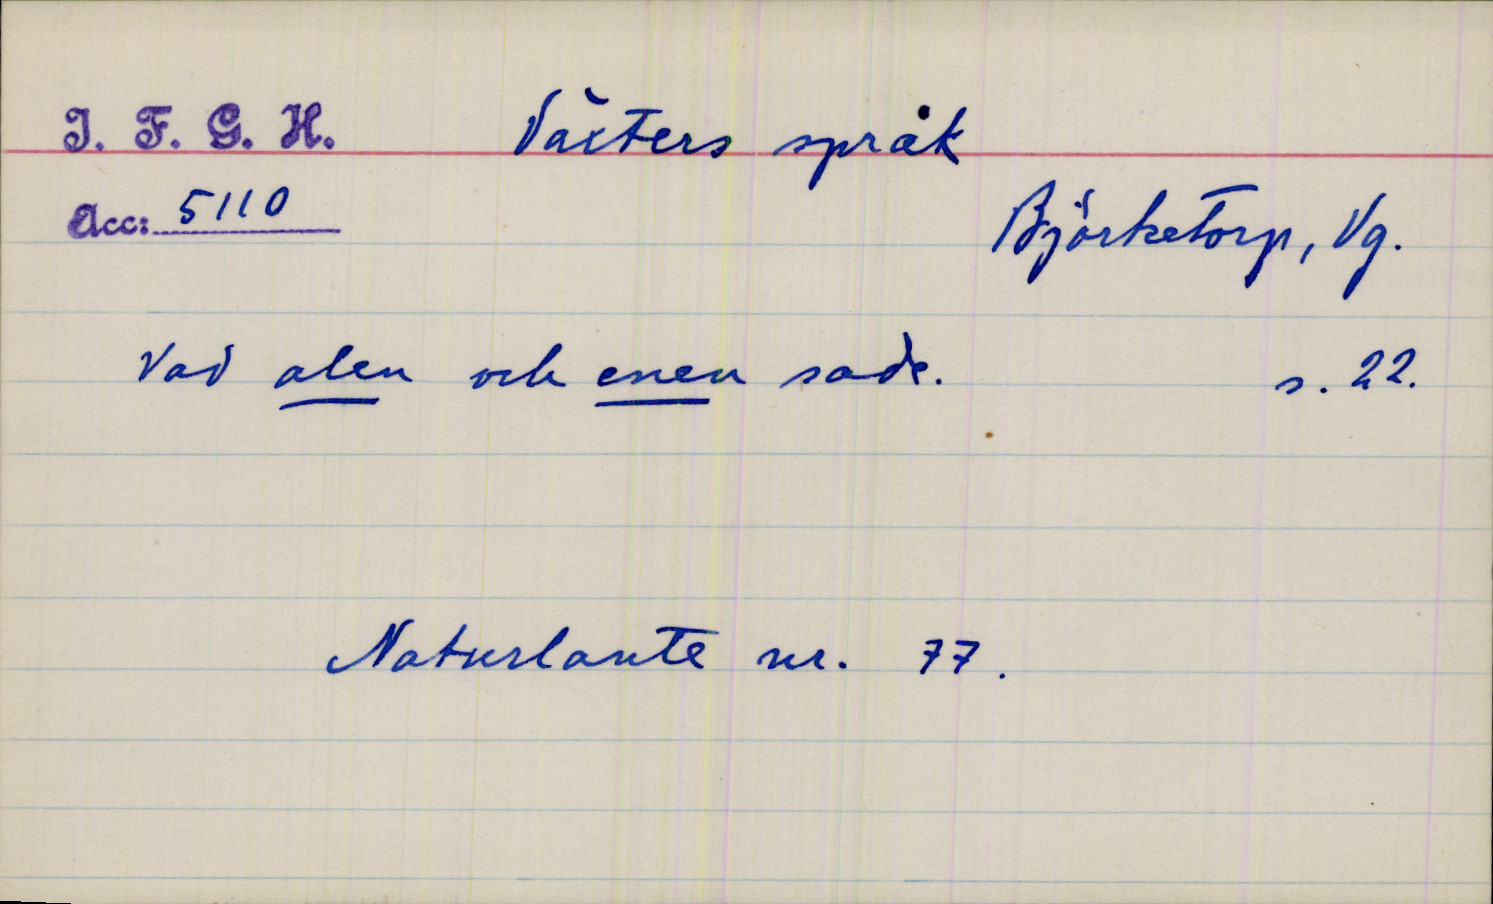 I. F. G. H. Växters språk
Acc: 5110
Björketorp, Vg.
Vad alen och enen sade. s. 22.
Naturlante nr. 77.